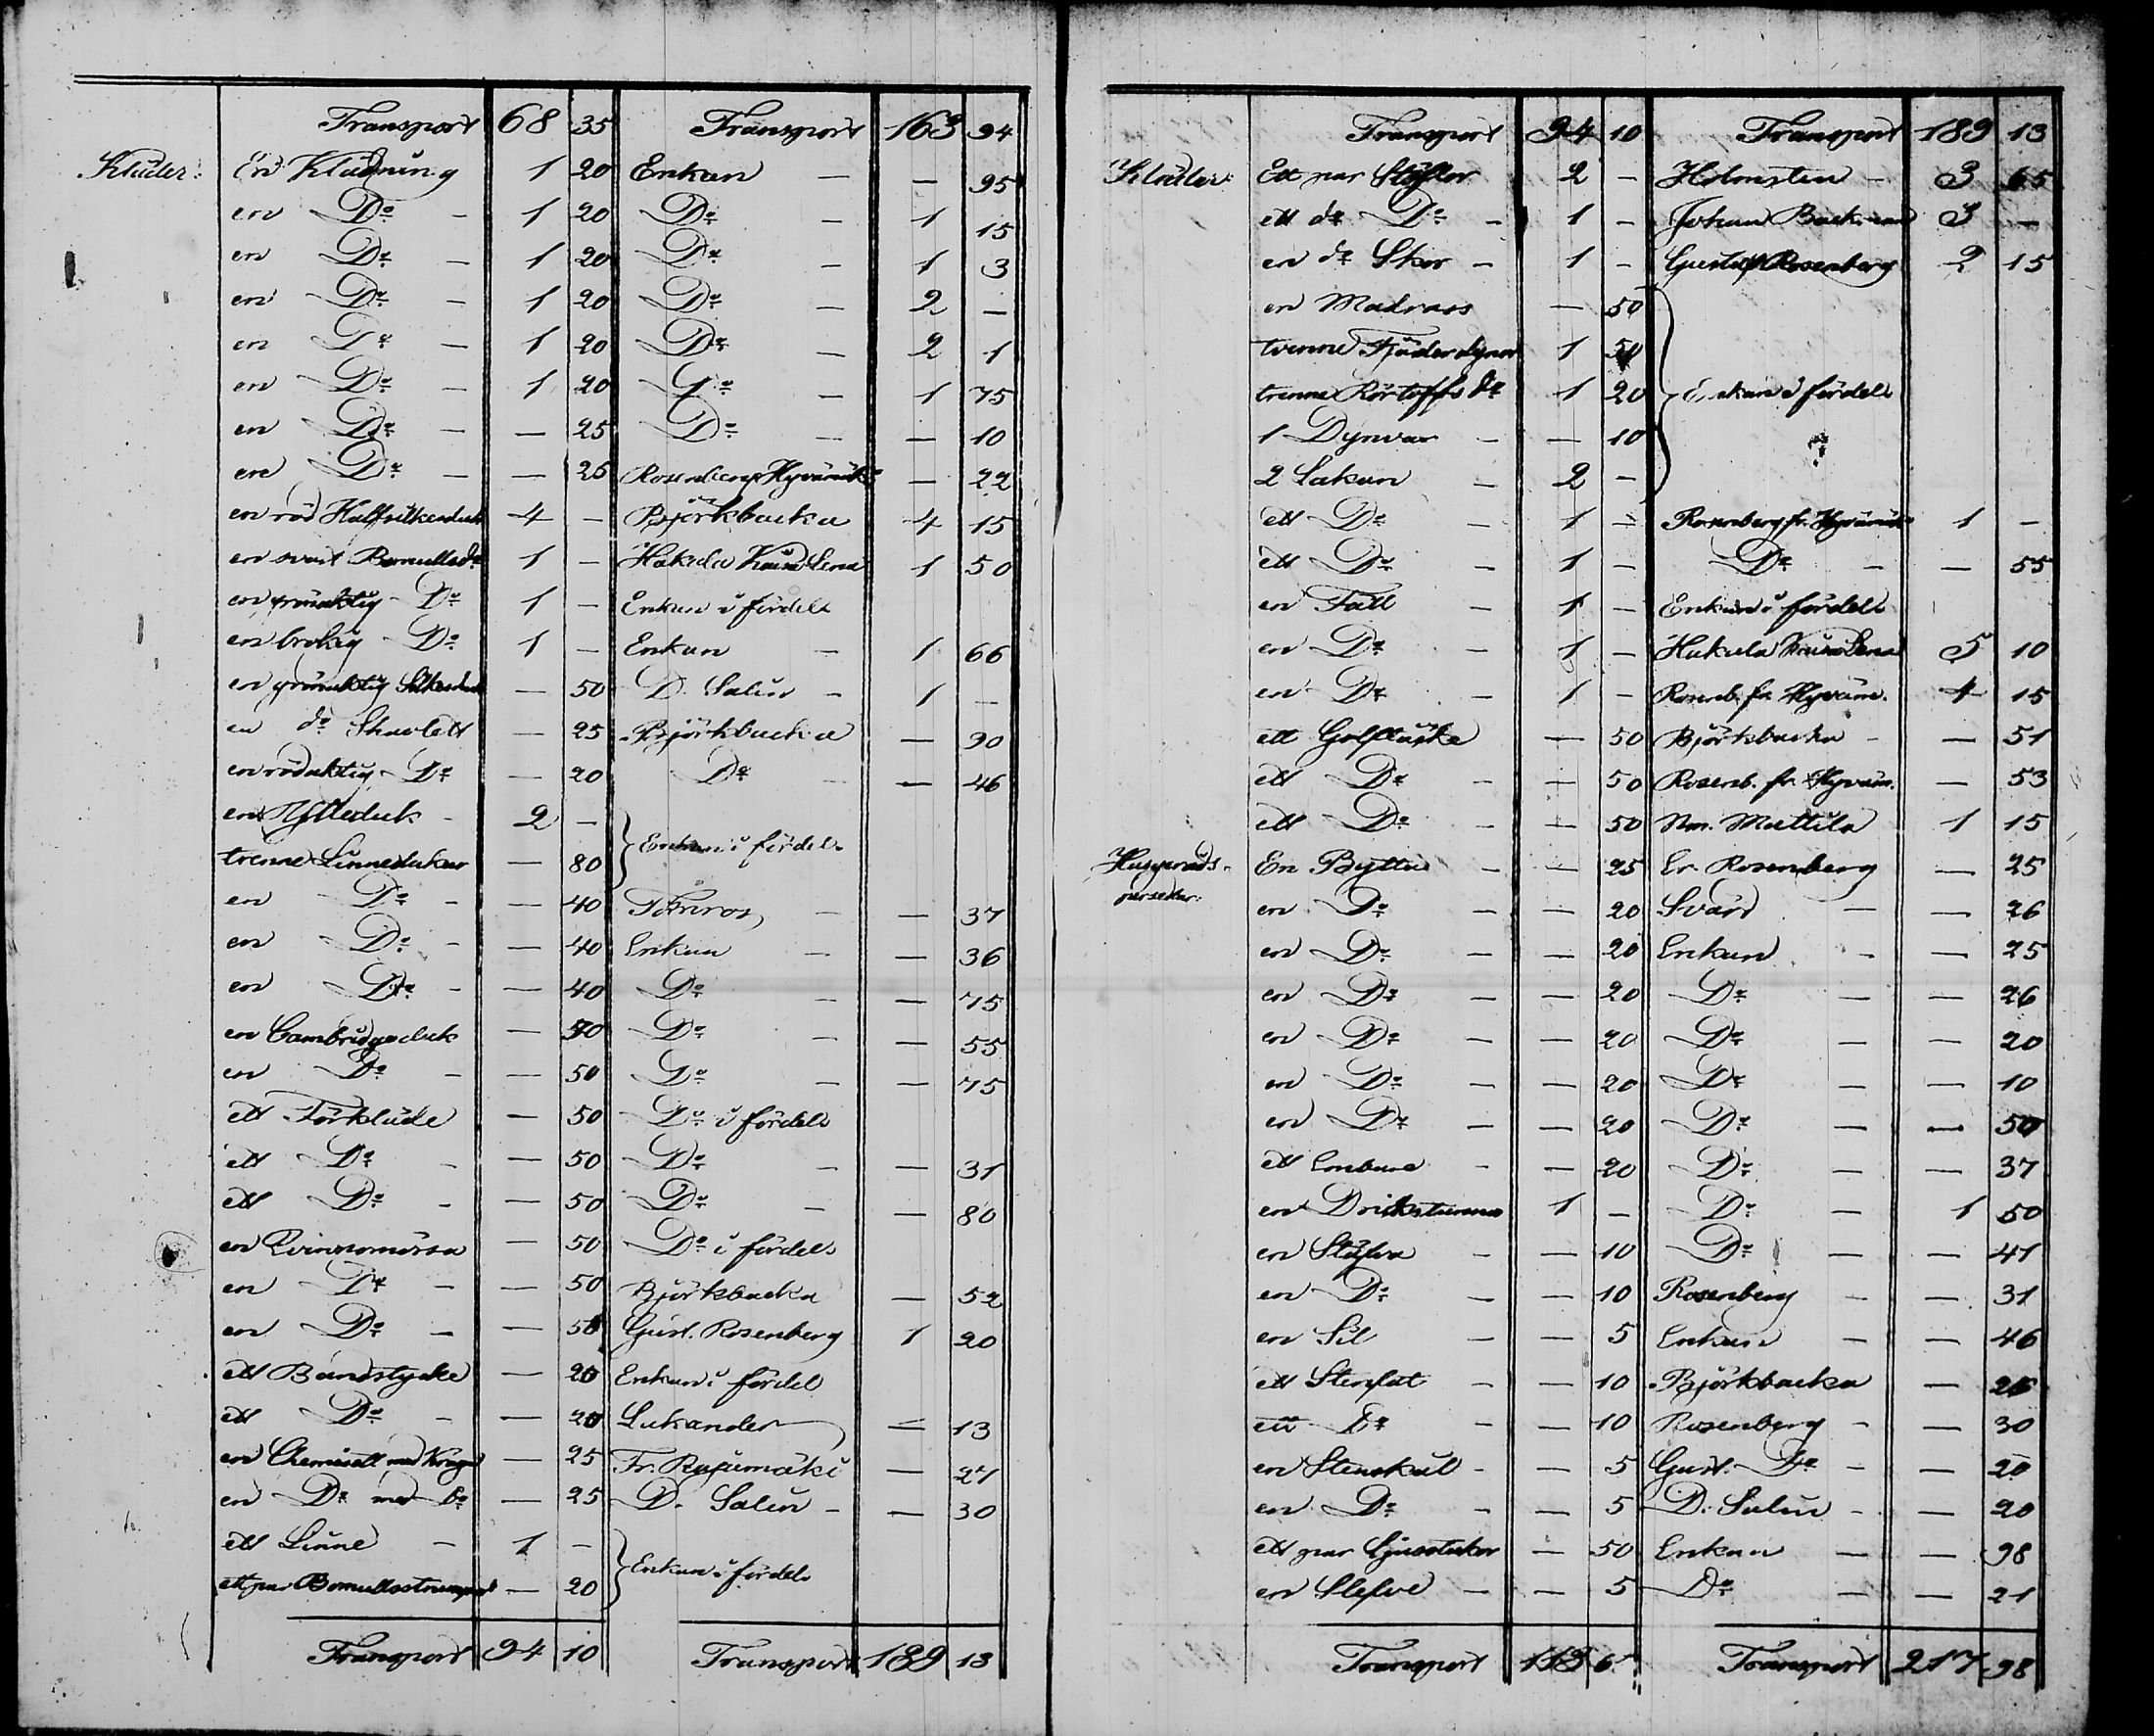 Transport 68 35 Transport 163 94
Kläder: En Klädning 1 20 Enkan — — 95
en Do - 1 20 Do — 1 15
en Do - 1 20 Do — 1 3
en Do - 1 20 Do — 2 —
en Do - 1 20 Do — 2 1
en Do - 1 20 Do — 1 75
en Do - — 25 Do — — 10
en Do - — 25 Rosenberg Hyvänäk — 22
en röd Halfsilkesduk 4 - Björkbacka 4 15
en svart Bomullsdo 1 - Hakula Kaisa Lena 1 50
en grönaktig Do 1 - Enkan i fördel
en brokig Do 1 - Enkan — 1 66
en grönaktig Silkesduk — 50 D. Salin - 1 —
en do Shavlett — 25 Björkbacka — 90
en rödaktig Do — 20 Do — 46
en Ylleduk - 2 -
trenne Linnedukar — 80 Enkan i fördel
en Do - — 40 Törnros — — 37
en Do - — 40 Enkan — — 36
en Do - — 40 Do — — 75
en Cambridgeduk — 50 Do — — 55
en Do - — 50 Do — — 75
ett Förkläde — 50 Do i fördel
ett Do - — 50 Do — — 31
ett Do - — 50 Do — — 80
en Qvinnomössa — 50 Do i fördel
en Do - — 50 Björkbacka — 52
en Do - — 50 Gust. Rosenberg 1 20
ett Bandstycke — 20 Enkan i fördel
ett Do - — 20 Lukander — 13
en Chemisett med Krage — 25 Fr. Rajumäki — 27
en Do med Do — 25 D. Salin - — 30
ett Linne - 1 -
ett par Bomullsstrumpor — 20 Enkan i fördel
Transport 94 10 Transport 189 13
Transport 94 10 Transport 189 13
Kläder: Ett par Stöflor 2 - Holmsten - 3 65
ett do Do - 1 - Johan Backman 3 —
en do Skor - 1 - Gustaf Rosenberg 2 15
en Madrass — 50
tvenne Fjäderdynor 1 50
trenne do 1 20 Enkan i fördel
1 Dynvar - — 10
2 Lakan - 2 -
ett Do - 1 - Rosenberg fr. Hyvänäk 1 -
ett Do - 1 - Do - — 55
en Fäll - 1 - Enkan i fördel
en Do - 1 - Hakula Kaisa Lena 5 10
en Do - 1 - Rosenb. fr. Hyvän. 4 15
ett Golftäcke — 50 Björkbacka - — 51
ett Do - — 50 Rosenb. fr. Hyvän. — 53
ett Do - — 50 Nm. Mattila 1 15
Husgeråds- En Bytta - — 25 Er. Rosenberg — 25
persedlar: en Do - — 20 Svärd — — 26
en Do - — 20 Enkan - — 25
en Do - — 20 Do — — 26
en Do - — 20 Do — — 20
en Do - — 20 Do — — 10
en Do - — 20 Do — — 50
ett Embare - — 20 Do — — 37
en Drickstunna 1 - Do — 1 50
en Stäfva - — 10 Do — — 41
en Do - — 10 Rosenberg - — 31
en Sil - — 5 Enkan — — 46
ett Stenfat - — 10 Björkbacka — 26
ett Do - — 10 Rosenberg - — 30
en Stenskål - — 5 Gust. Do - — 20
en Do - — 5 D. Salin - — 20
ett par Ljusstakar — 50 Enkan — — 98
en Slefve - — 5 Do — — 21
Transport 113 Transport 217 98